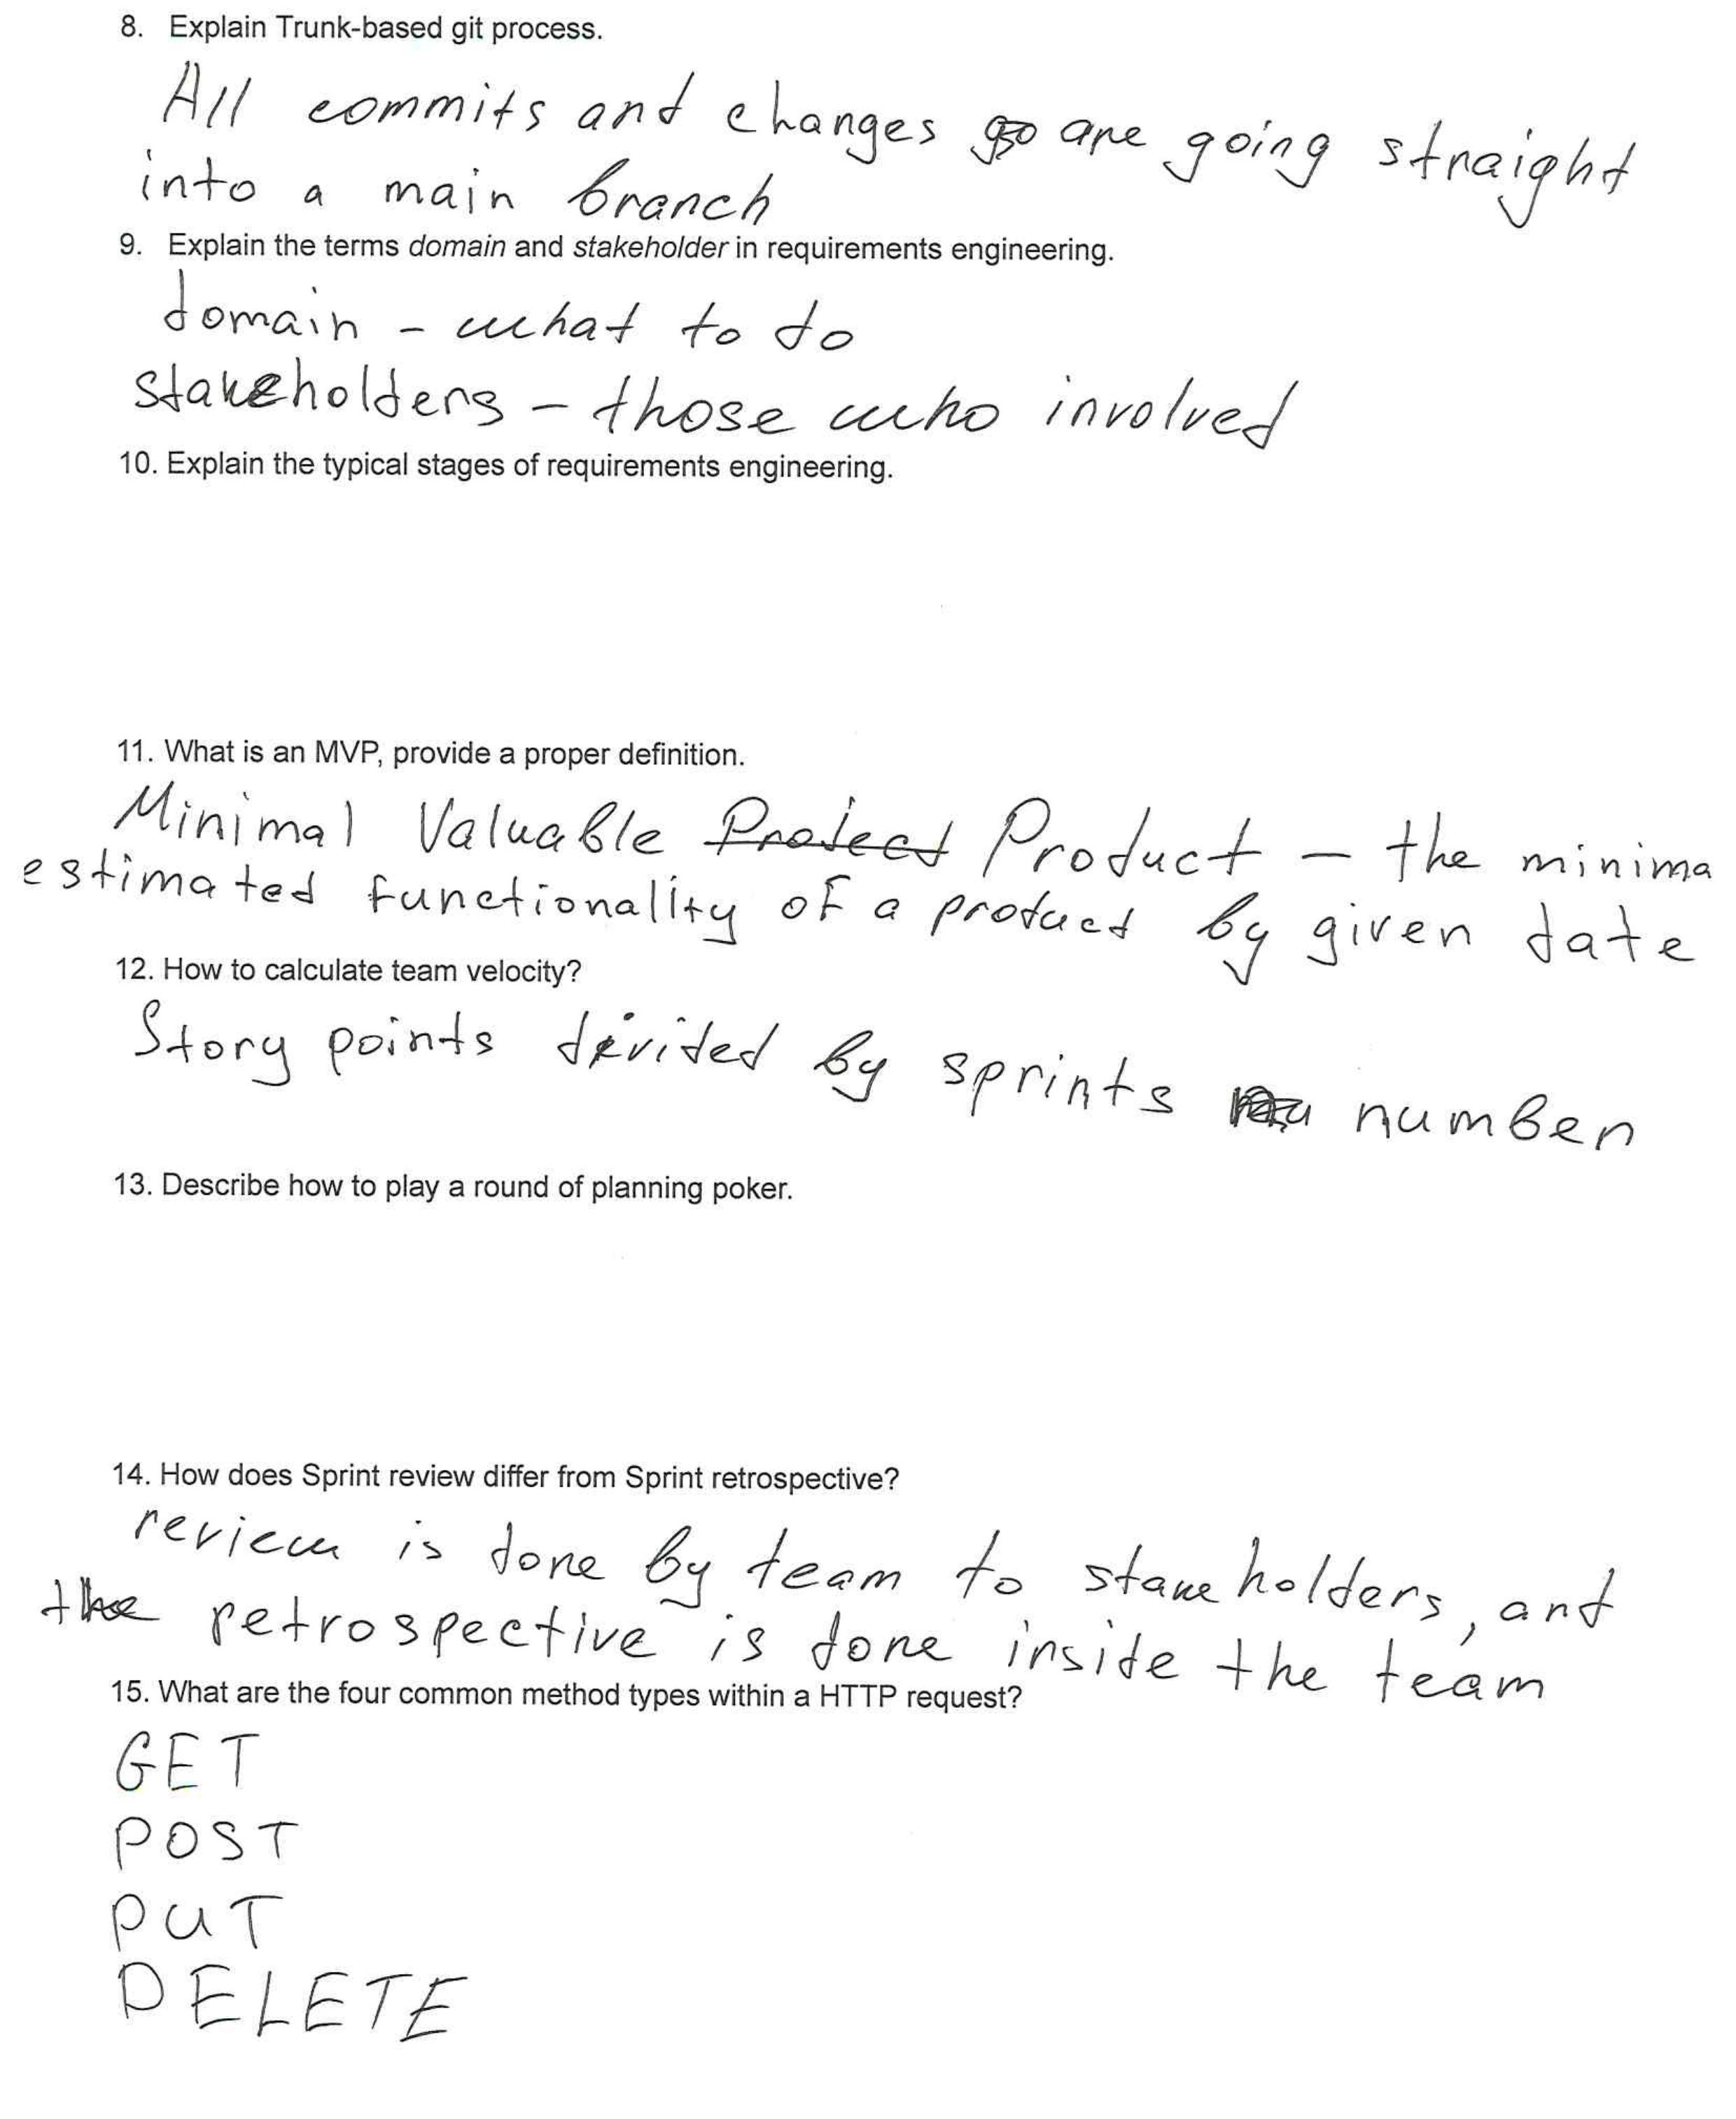 8. Explain Trunk-based git process.
All commits and changes go are going straight
into a main branch
9. Explain the terms domain and stakeholder in requirements engineering.
domain - what to do
stakeholders - those who involved
10. Explain the typical stages of requirements engineering.
11. What is an MVP, provide a proper definition.
Minimal Valuable Project Product - the minima
estimated functionality of a product by given date
12. How to calculate team velocity?
Story points divided by sprints number
13. Describe how to play a round of planning poker.
14. How does Sprint review differ from Sprint retrospective?
review is done by team to stakeholders, and
the retrospective is done inside the team
15. What are the four common method types within a HTTP request?
GET
POST
PUT
DELETE